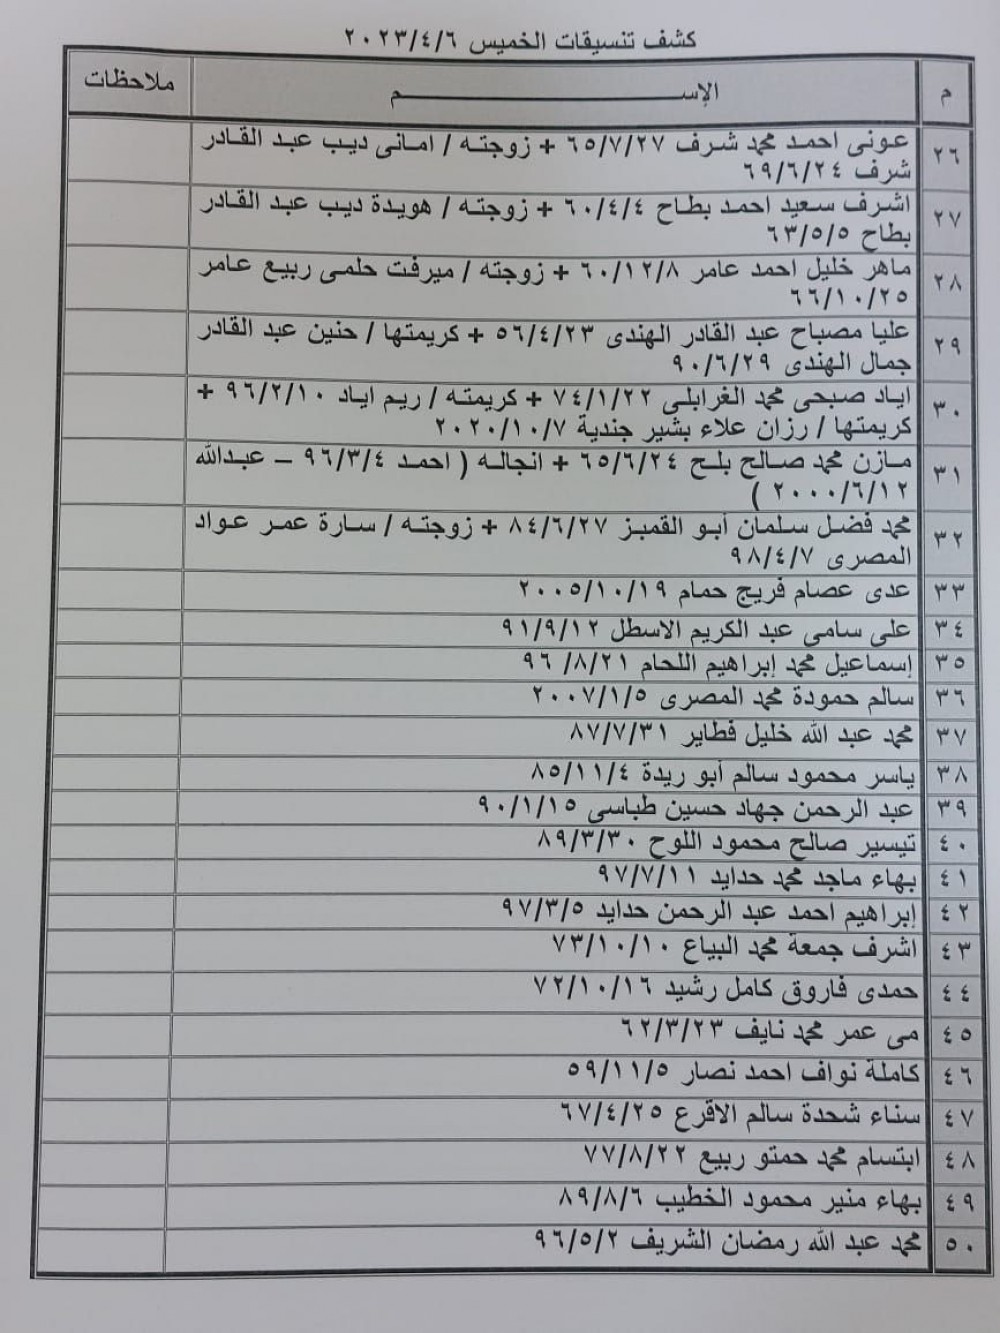 كشف تنسيقات الخميس ٢٠٢٣/٤/٦
م الإســــــــــم ملاحظات
٢٦ عونى احمد محمد شرف ٦٥/٧/٢٧ + زوجته / امانى ديب عبد القادر
شرف ٦٩/٦/٢٤
٢٧ اشرف سعيد احمد بطاح ٦٠/٤/٤ + زوجته / هويدة ديب عبد القادر
بطاح ٦٣/٥/٥
٢٨ ماهر خليل احمد عامر ٦٠/١٢/٨ + زوجته / ميرفت حلمى ربيع عامر
٦٦/١٠/٢٥
٢٩ عليا مصباح عبد القادر الهندى ٥٦/٤/٢٣ + كريمتها / حنين عبد القادر
جمال الهندى ٩٠/٦/٢٩
٣٠ اياد صبحى محمد الغرابلى ٧٤/١/٢٢ + كريمته / ريم اياد ٩٦/٢/١٠ +
كريمتها / رزان علاء بشير جندية ٢٠٢٠/١٠/٧
٣١ مازن محمد صالح بلح ٦٥/٦/٢٤ + انجاله ( احمد ٩٦/٣/٤ – عبدالله
٢٠٠٠/٦/١٢ )
٣٢ محمد فضل سلمان أبو القمبز ٨٤/٦/٢٧ + زوجته / سارة عمر عواد
المصرى ٩٨/٤/٧
٣٣ عدى عصام فريج حمام ٢٠٠٥/١٠/١٩
٣٤ على سامى عبد الكريم الاسطل ٩١/٩/١٢
٣٥ إسماعيل محمد إبراهيم اللحام ٩٦/٨/٢١
٣٦ سالم حمودة محمد المصرى ٢٠٠٧/١/٥
٣٧ محمد عبد الله خليل فطاير ٨٧/٧/٣١
٣٨ ياسر محمود سالم أبو ريدة ٨٥/١١/٤
٣٩ عبد الرحمن جهاد حسين طباسى ٩٠/١/١٥
٤٠ تيسير صالح محمود اللوح ٨٩/٣/٣٠
٤١ بهاء ماجد محمد حدايد ٩٧/٧/١١
٤٢ إبراهيم احمد عبد الرحمن حدايد ٩٧/٣/٥
٤٣ اشرف جمعة محمد البياع ٧٣/١٠/١٠
٤٤ حمدى فاروق كامل رشيد ٧٢/١٠/١٦
٤٥ مى عمر محمد نايف ٦٢/٣/٢٣
٤٦ كاملة نواف احمد نصار ٥٩/١١/٥
٤٧ سناء شحدة سالم الاقرع ٦٧/٤/٢٥
٤٨ ابتسام محمد حمتو ربيع ٧٧/٨/٢٢
٤٩ بهاء منير محمود الخطيب ٨٩/٨/٦
٥٠ محمد عبد الله رمضان الشريف ٩٦/٥/٢